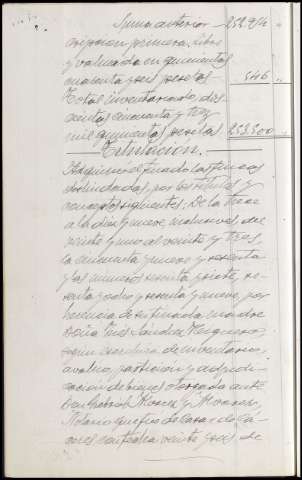 Suma anterior 252.954
cripcion primera. Libre
y valorada en quinientas
cuarenta y seis pesetas 546 "
Total inventariado, dos
cientas cincuenta y tres
mil quinientas pesetas 253.500 "
Titulacion.
Adquirio el finado las fincas
deslindadas, por los titulos y
conceptos siguientes: De la trece
a la diez y nueve, inclusives, del
veinte y uno al veinte y tres,
la cincuenta y nueve y sesenta
y los numeros sesenta y siete, se
senta y ocho y sesenta y nueve, por
herencia de su finada madre
Doña Inés Sánchez
segun escritura de inventario,
avaluo, particion y adjudi
cacion de bienes otorgada ante
Don Gabriel y Alvarez,
Notario que fué de Casar de Cá
ceres con fecha veinte y seis de